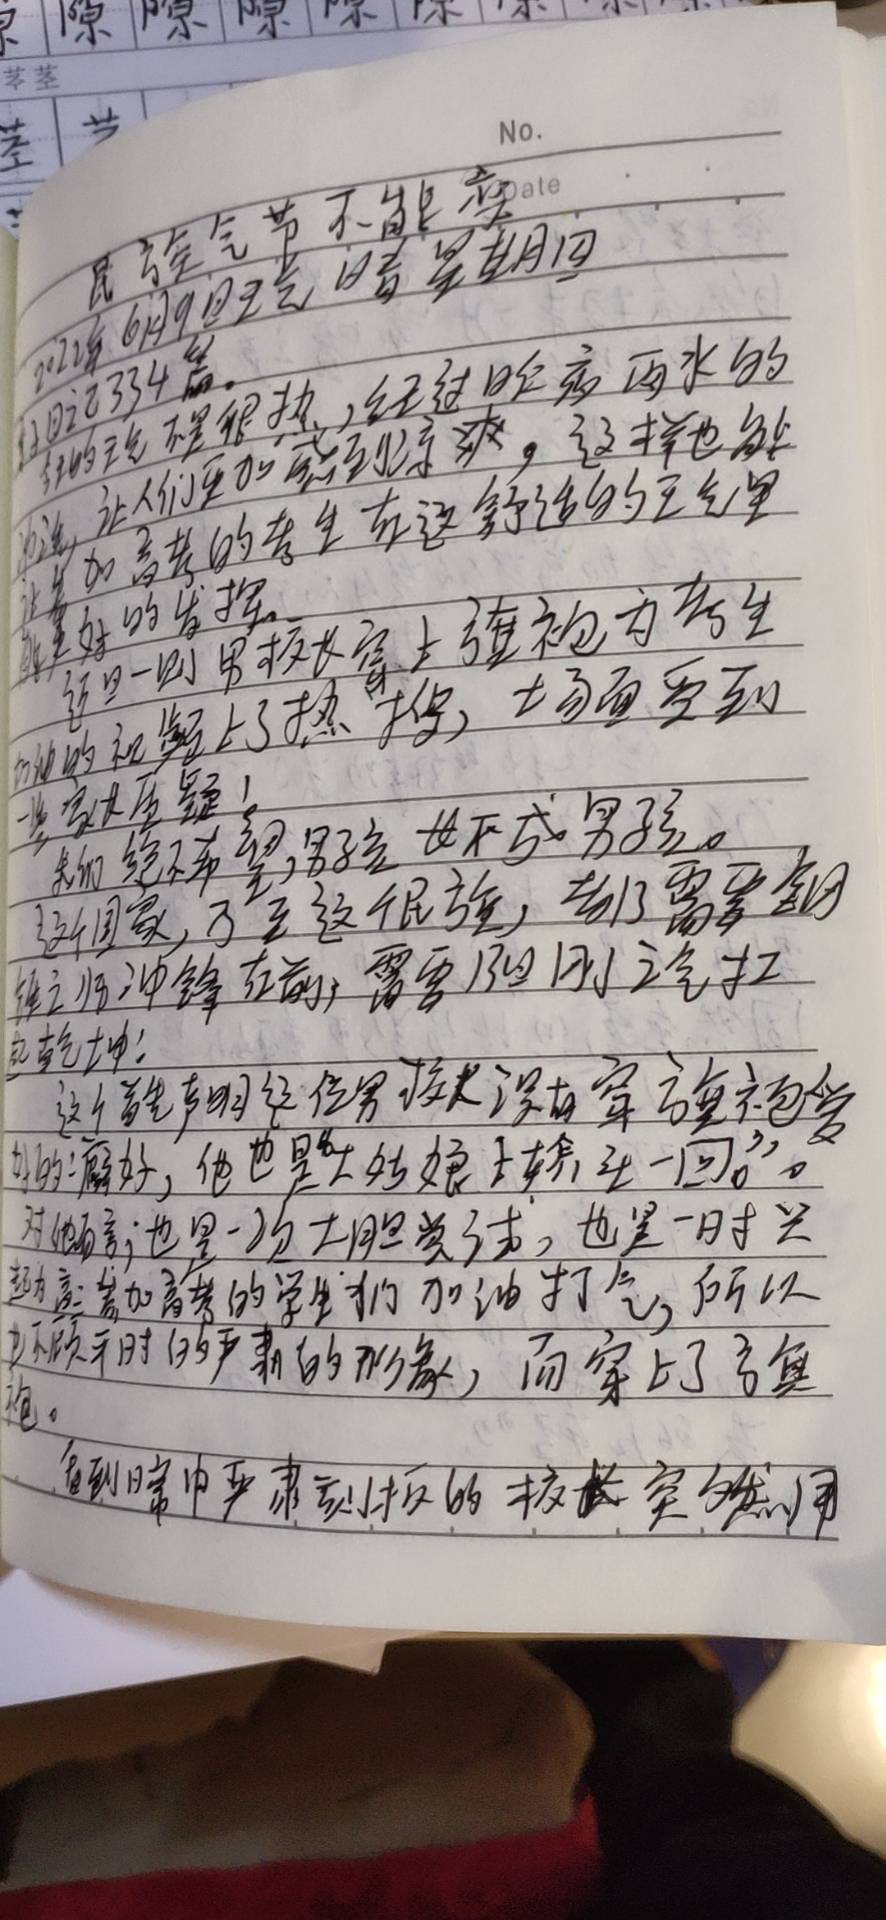 隙 隙 隙 隙 隙 隙 隙
芩茎
茎 艹
No.
Date
民族气节不能变
2022年6月9日天气晴星期四
日记334篇。
的天气不是很热,经过昨夜雨水的
让人们更加感到凉爽。这样也能
让参加高考的考生在这舒适的天气里
更好的发挥。
这里一则男校长穿上旗袍为考生
加油的视频上了热搜,场面受到
一些家长质疑!
我们绝不希望,男孩女不成男孩。
这个国家,乃至这个民族,都需要钢
铁之师冲锋在前,需要阳刚之气扛
起乾坤!
这个首先声明这位男校长没有穿旗袍爱
好的癖好,他也是“大姑娘上轿头一回。”。
对他而言,也是一次大胆尝试,也是一时兴
起为参加高考的学生们加油打气,所以
也不顾平时的严肃的形象,而穿上了旗
袍。
看到日常中严肃刻板的校长突然间